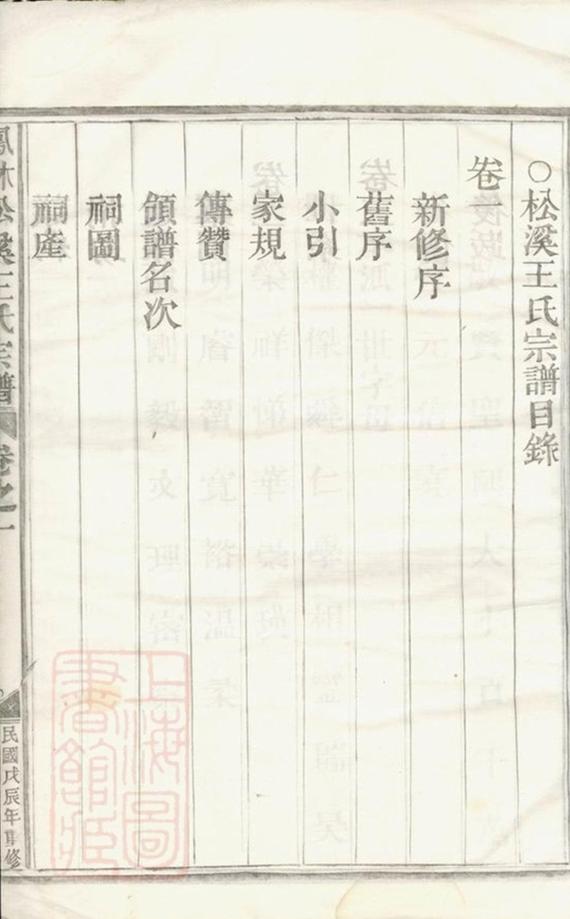 ○松溪王氏宗譜目錄
卷一
新修序
舊序
小引
家規
傳贊
領譜名次
祠圖
祠產
鳳林松溪王氏宗譜
卷之一
民國戊辰年重修
上海圖
書館藏